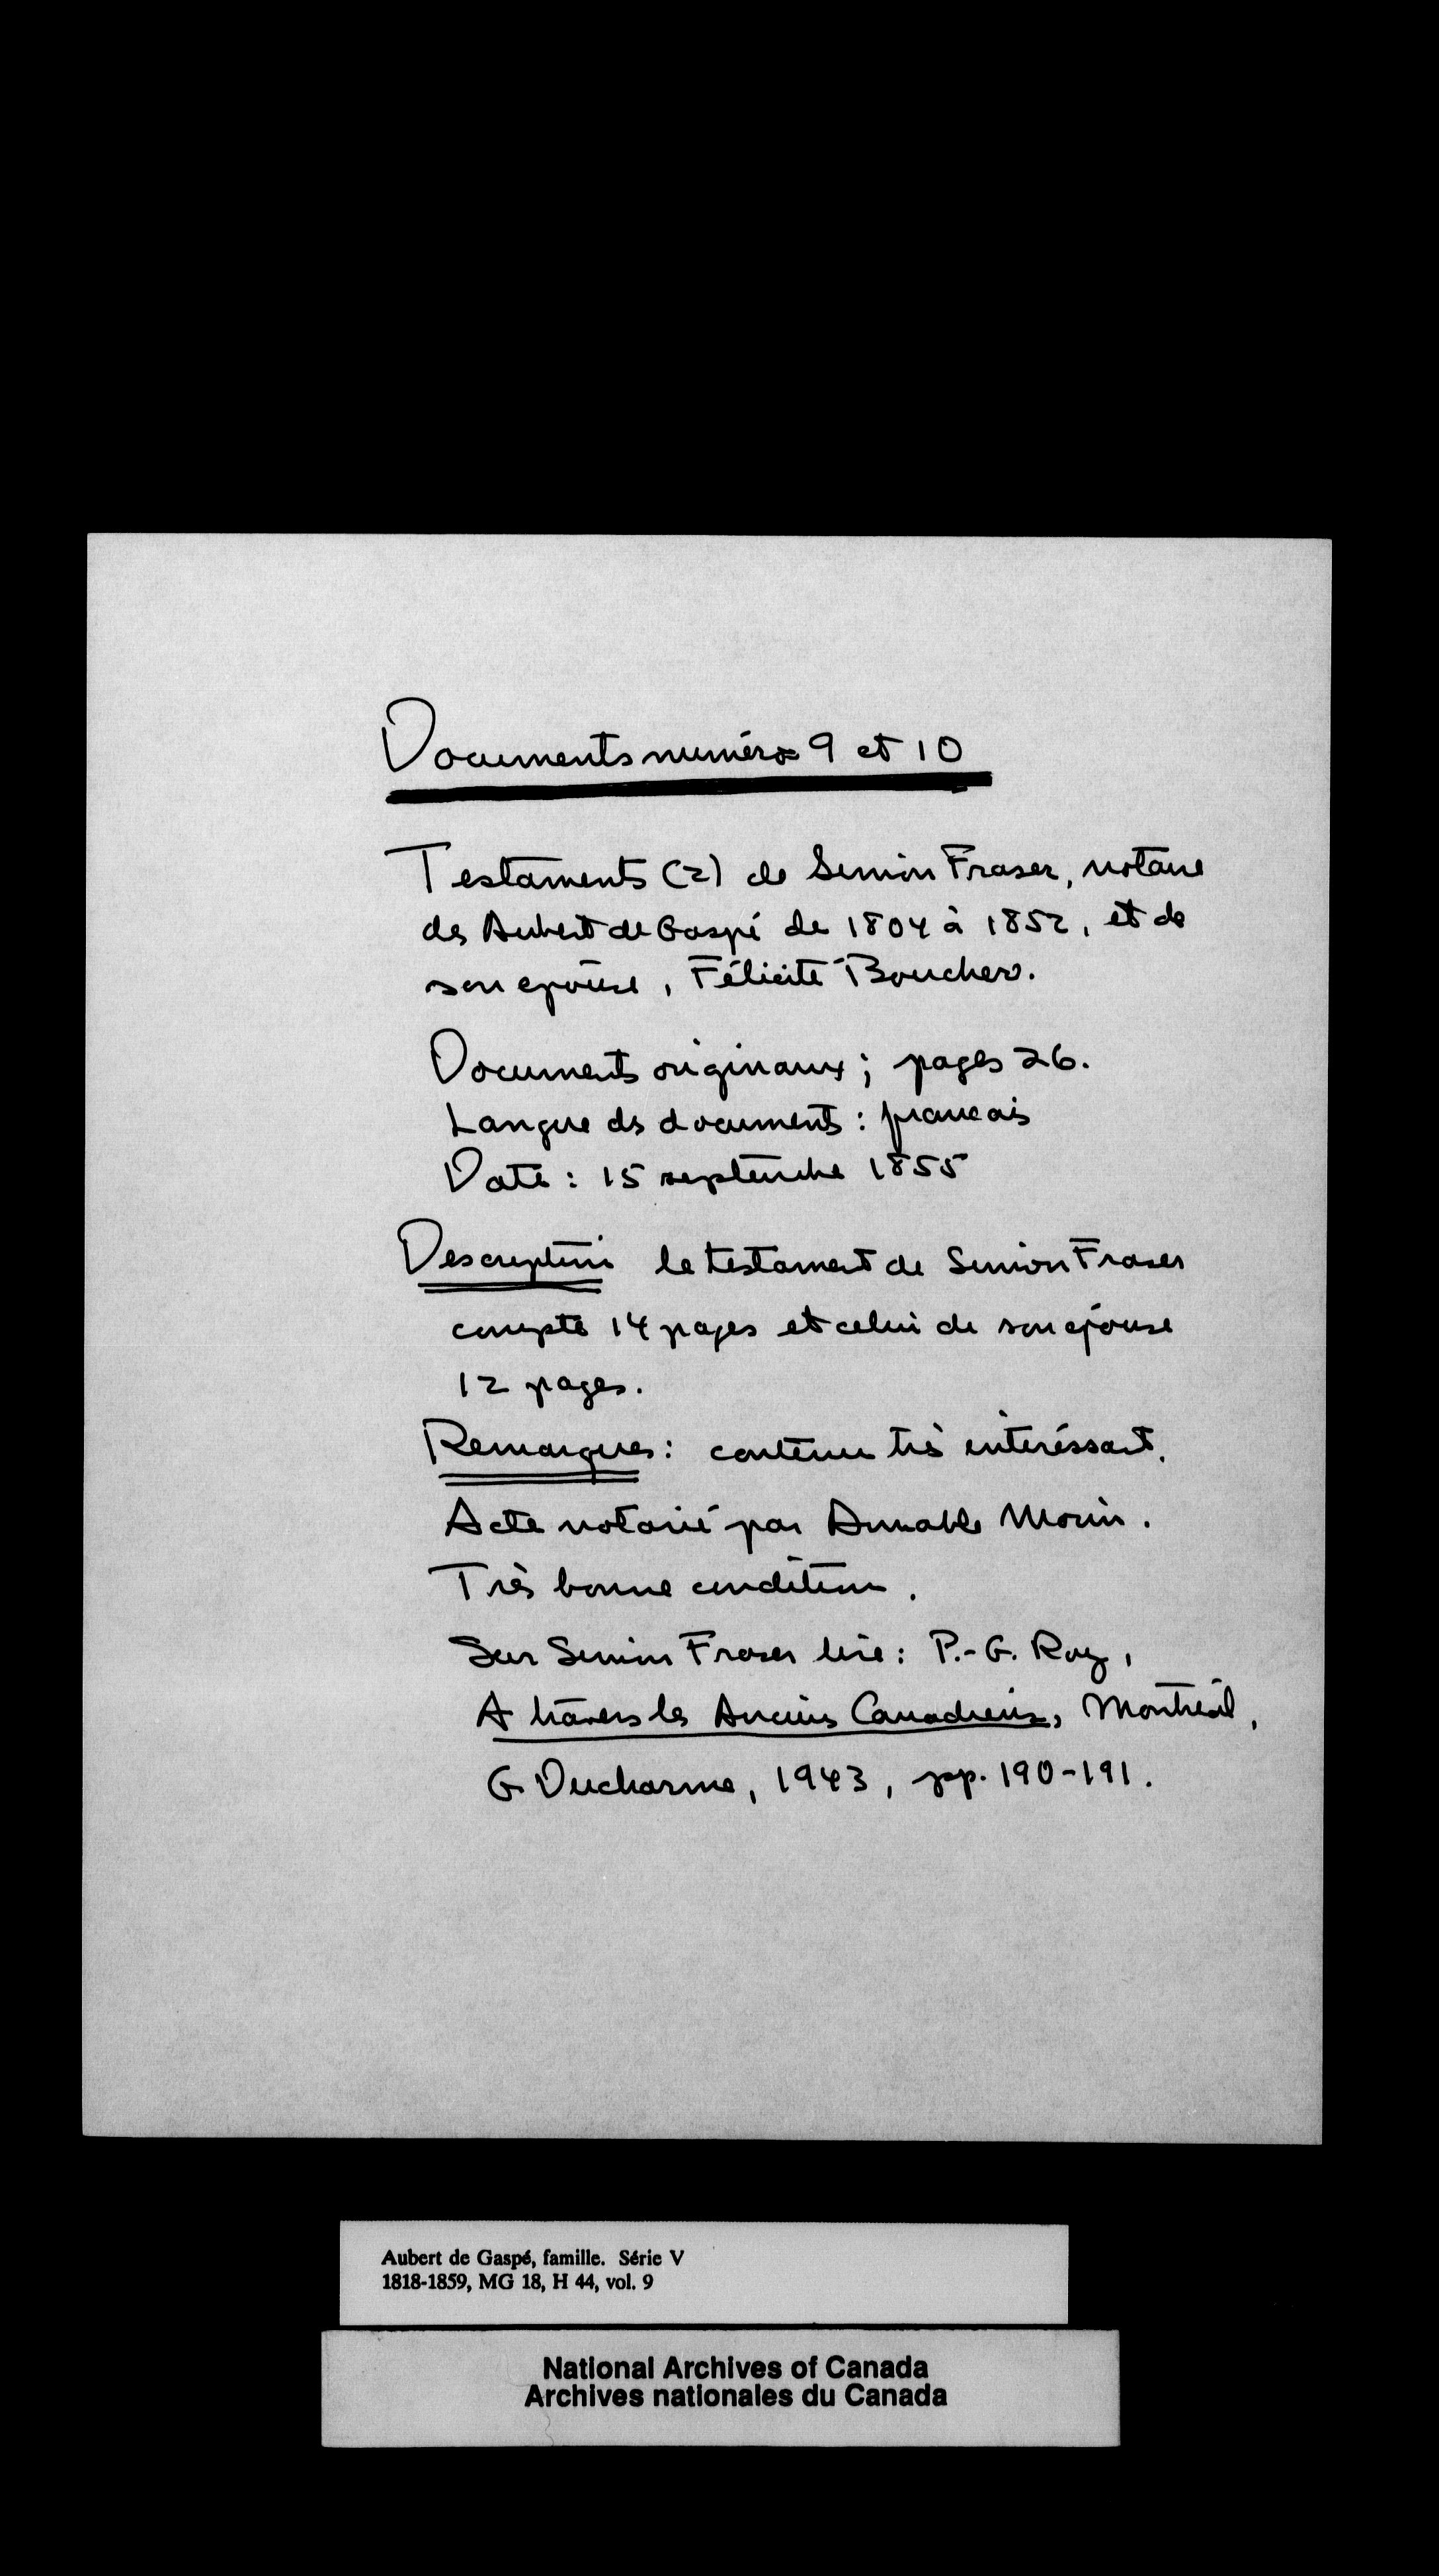 Documents numéros 9 et 10
Testaments (2) de Simon Fraser, notaire
des Aubert de Gaspé de 1804 à 1852, et de
son épouse, Félicité Boucher.
Documents originaux; pages 26.
Langue des documents: français
Date: 15 septembre 1855
Description le testament de Simon Fraser
compte 14 pages et celui de son épouse
12 pages.
Remarques: contenu très intéréssant.
Acte notarié par Amable Morin.
Très bonne condition.
Sur Simon Fraser lire: P.-G. Roy,
A travers les Anciens Canadiens, Montréal,
G. Ducharme, 1943, pp. 190-191.
Aubert de Gaspé, famille. Série V
1818-1859, MG 18, H 44, vol. 9
National Archives of Canada
Archives nationales du Canada